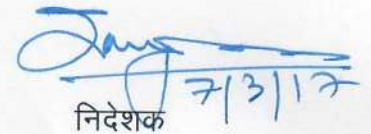 7/3/17
निदेशक